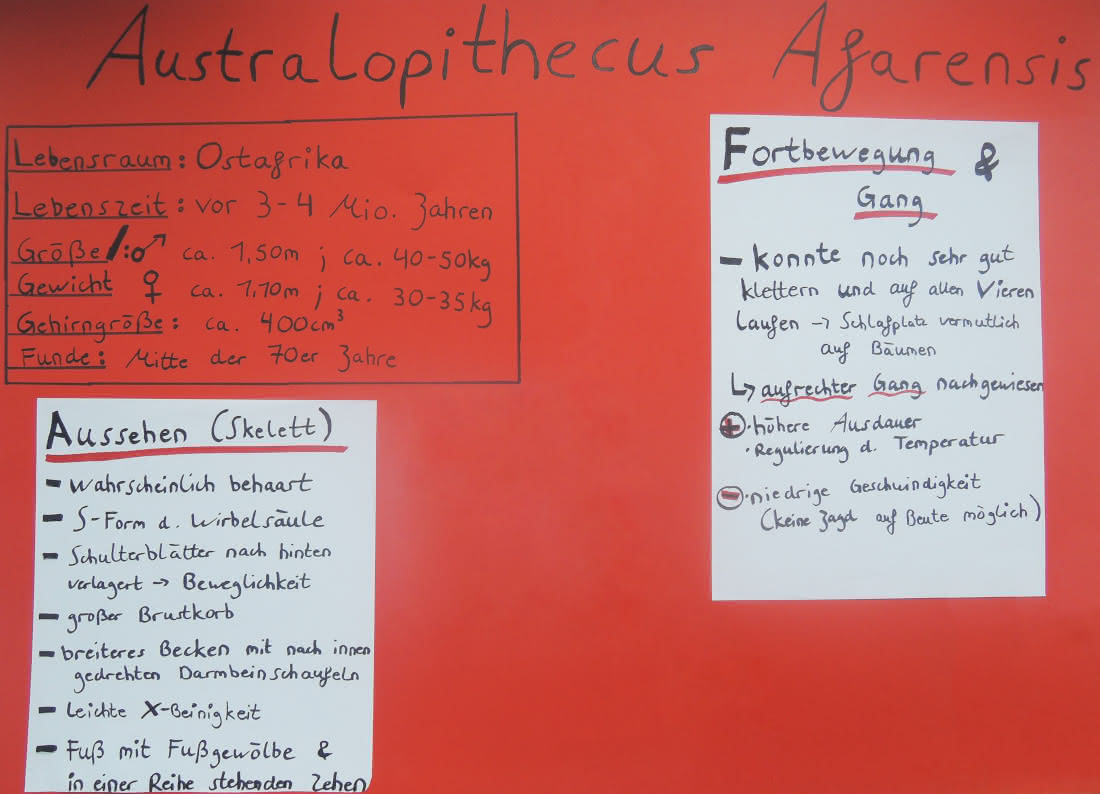 Australopithecus Afarensis
Lebensraum: Ostafrika
Lebenszeit: vor 3-4 Mio. Jahren
Größe/:♂ ca. 1,50m ; ca. 40-50kg
Gewicht ♀ ca. 1,10m ; ca. 30-35kg
Gehirngröße: ca. 400cm³
Funde: Mitte der 70er Jahre
Aussehen (Skelett)
- wahrscheinlich behaart
- S-Form d. Wirbelsäule
- Schulterblätter nach hinten
verlagert → Beweglichkeit
- großer Brustkorb
- breiteres Becken mit nach innen
gedrehten Darmbeinschaufeln
- leichte X-Beinigkeit
- Fuß mit Fußgewölbe &
in einer Reihe stehenden Zehen
Fortbewegung &
Gang
- konnte noch sehr gut
klettern und auf allen Vieren
Laufen → Schlafplatz vermutlich
auf Bäumen
↳ aufrechter Gang nachgewiesen
⊕ · höhere Ausdauer
· Regulierung d. Temperatur
⊖ · niedrige Geschwindigkeit
(keine Jagd auf Beute möglich)